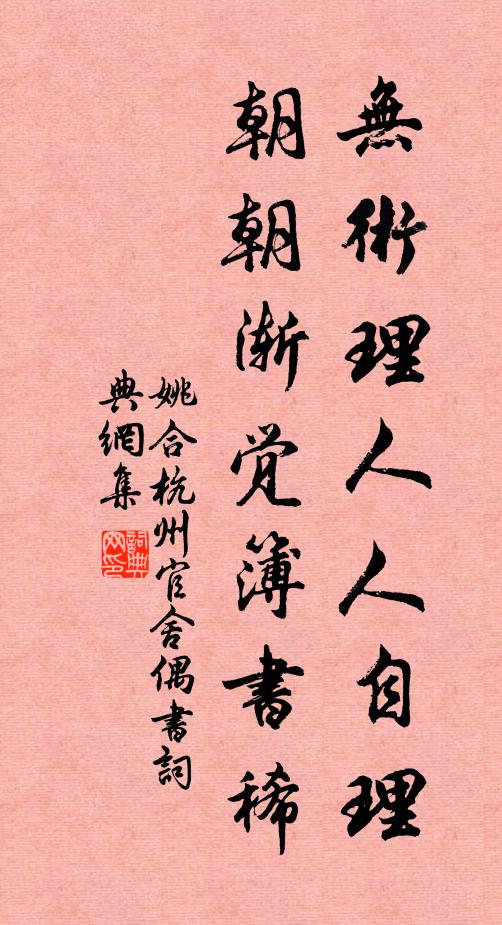 無術理人人自理
朝朝渐覺簿書稀
姚合杭州官舍偶書詞
典網集
詞典
网印